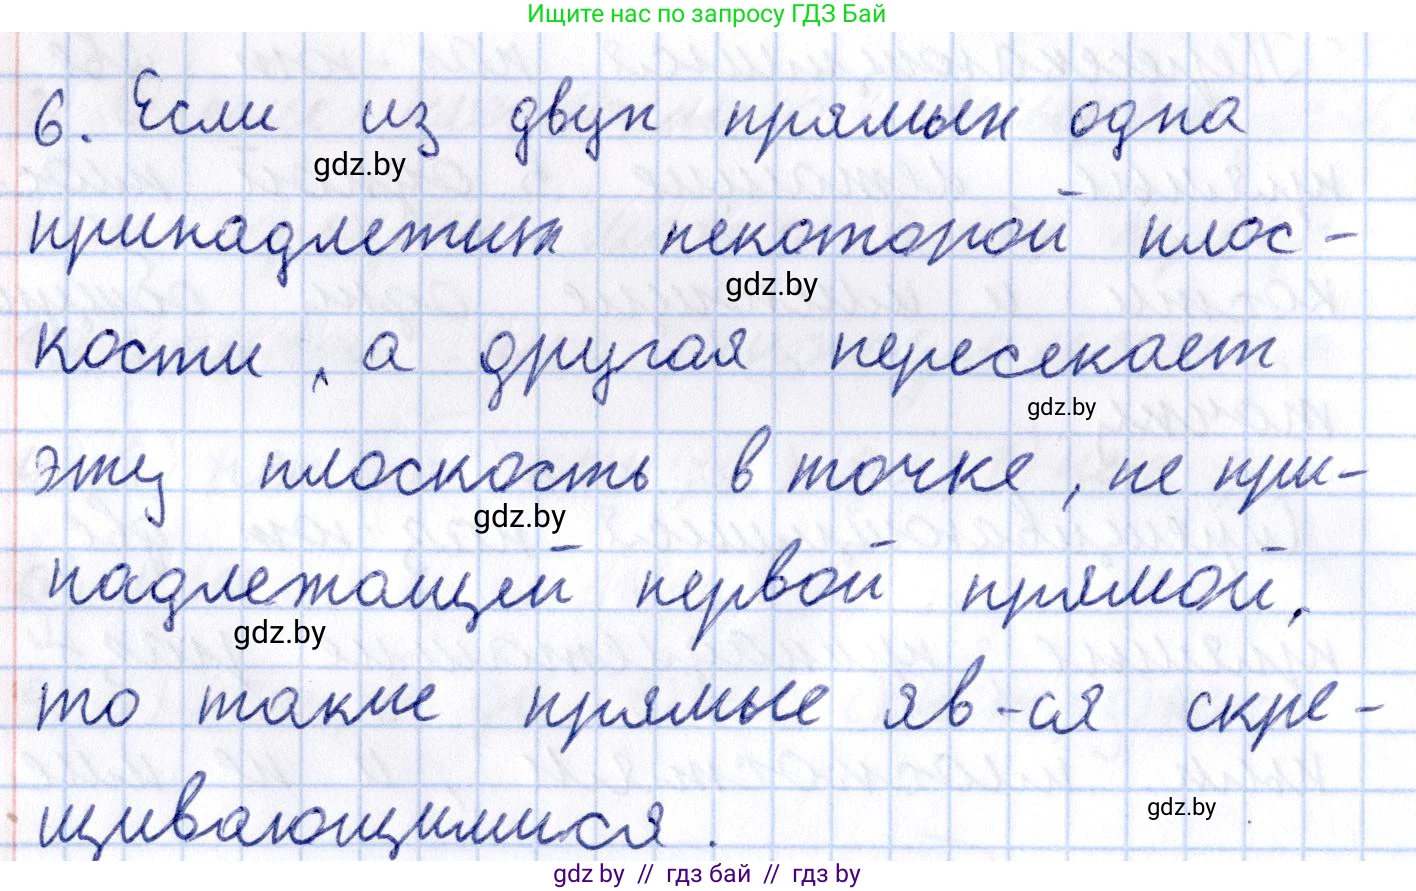 Ищите нас по запросу ГДЗ Бай
6. Если из двух прямых одна
gdz.by
принадлежит некоторой плос-
gdz.by
кости, а другая пересекает
gdz.by
эту плоскость в точке, не при-
gdz.by
надлежащей первой прямой,
gdz.by
то такие прямые яв-ся скре-
gdz.by
щивающимися.
gdz.by // гдз бай // гдз by